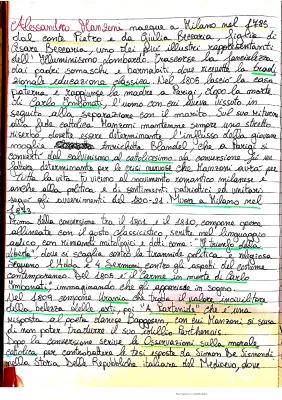 Alessandro Manzoni nacque a Milano nel 1785
dal conte Pietro e da Giulia Beccaria, figlia di
Cesare Beccaria, uno dei più illustri rappresentanti
dell'Illuminismo lombardo. Trascorse la fanciullezza
dai padri somaschi e barnabiti, dove ricevette la tradi
zionale educazione classica. Nel 1805 lasciò la casa
paterna e raggiunse la madre a Parigi, dopo la morte
di Carlo Imbonati, l'uomo con cui aveva vissuto in
seguito alla separazione con il marito. Sul suo ritorno
alla fede cattolica, Manzoni mantenne sempre uno stretto
riserbo, dovette essere determinante l'influsso della giovane
moglie Enrichetta Blondel, che a Parigi si
convertì dal calvinismo al cattolicesimo. La conversione fu un
fattore determinante per le crisi nervose che Manzoni aveva per
tutta la vita. Fu vicino al movimento romantico milanese e
anche alla politica e di sentimenti patriottici ed unitari
seguì gli avvenimenti del 1820-21. Muore a Milano nel
1873.
Prima della conversione, tra il 1801 e il 1810, compone opere
allineate con il gusto classicistico, scritte nel linguaggio
aulico, con rimandi mitologici e dotti come: "Il trionfo della
libertà", dove si scaglia contro la tirannide politica e religiosa
Seguono l'Adda e 4 Sermoni, contro gli aspetti del costume
contemporaneo. Del 1805 è il Carme in morte di Carlo
Imbonati, immaginando che gli apparisse in sogno.
Nel 1809 compone Urania che tratta il valore incivilitore
della bellezza delle arti, poi "A Parteneide" che è una
risposta al poeta danese Baggesen, con cui Manzoni si scusa
di non poter tradurre il suo idillio Parthenais.
Dopo la conversione scrive le Osservazioni sulla morale
cattolica per controbattere le tesi esposte da Simon De Sismondi
nella Storia delle Repubbliche italiane del Medioevo, dove